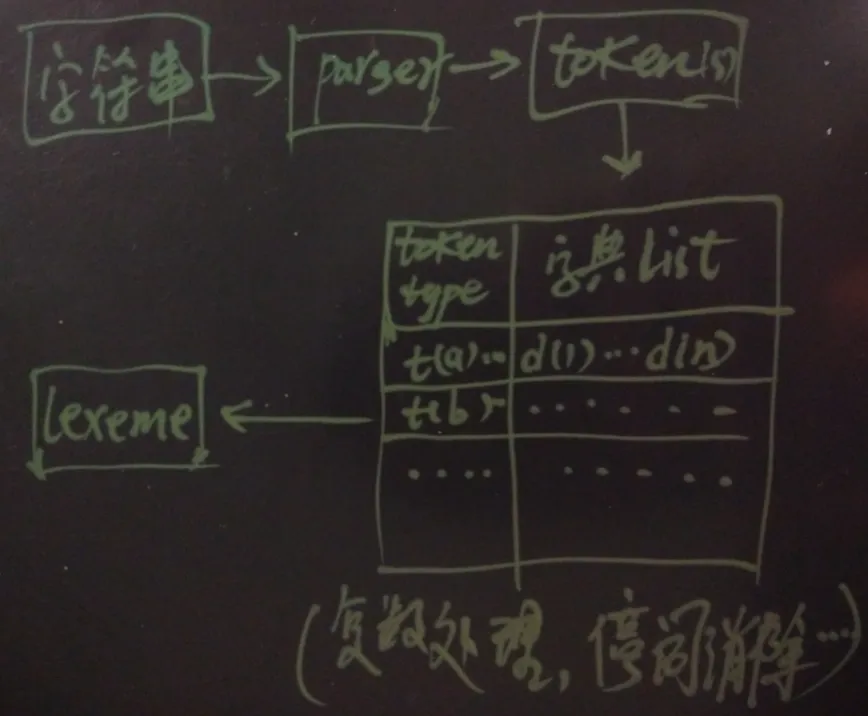 字符串
parser
token(s)
token
type
字典List
t(a)... d(1)...d(n)
t(b)
lexeme
(复数处理,停词消除...)